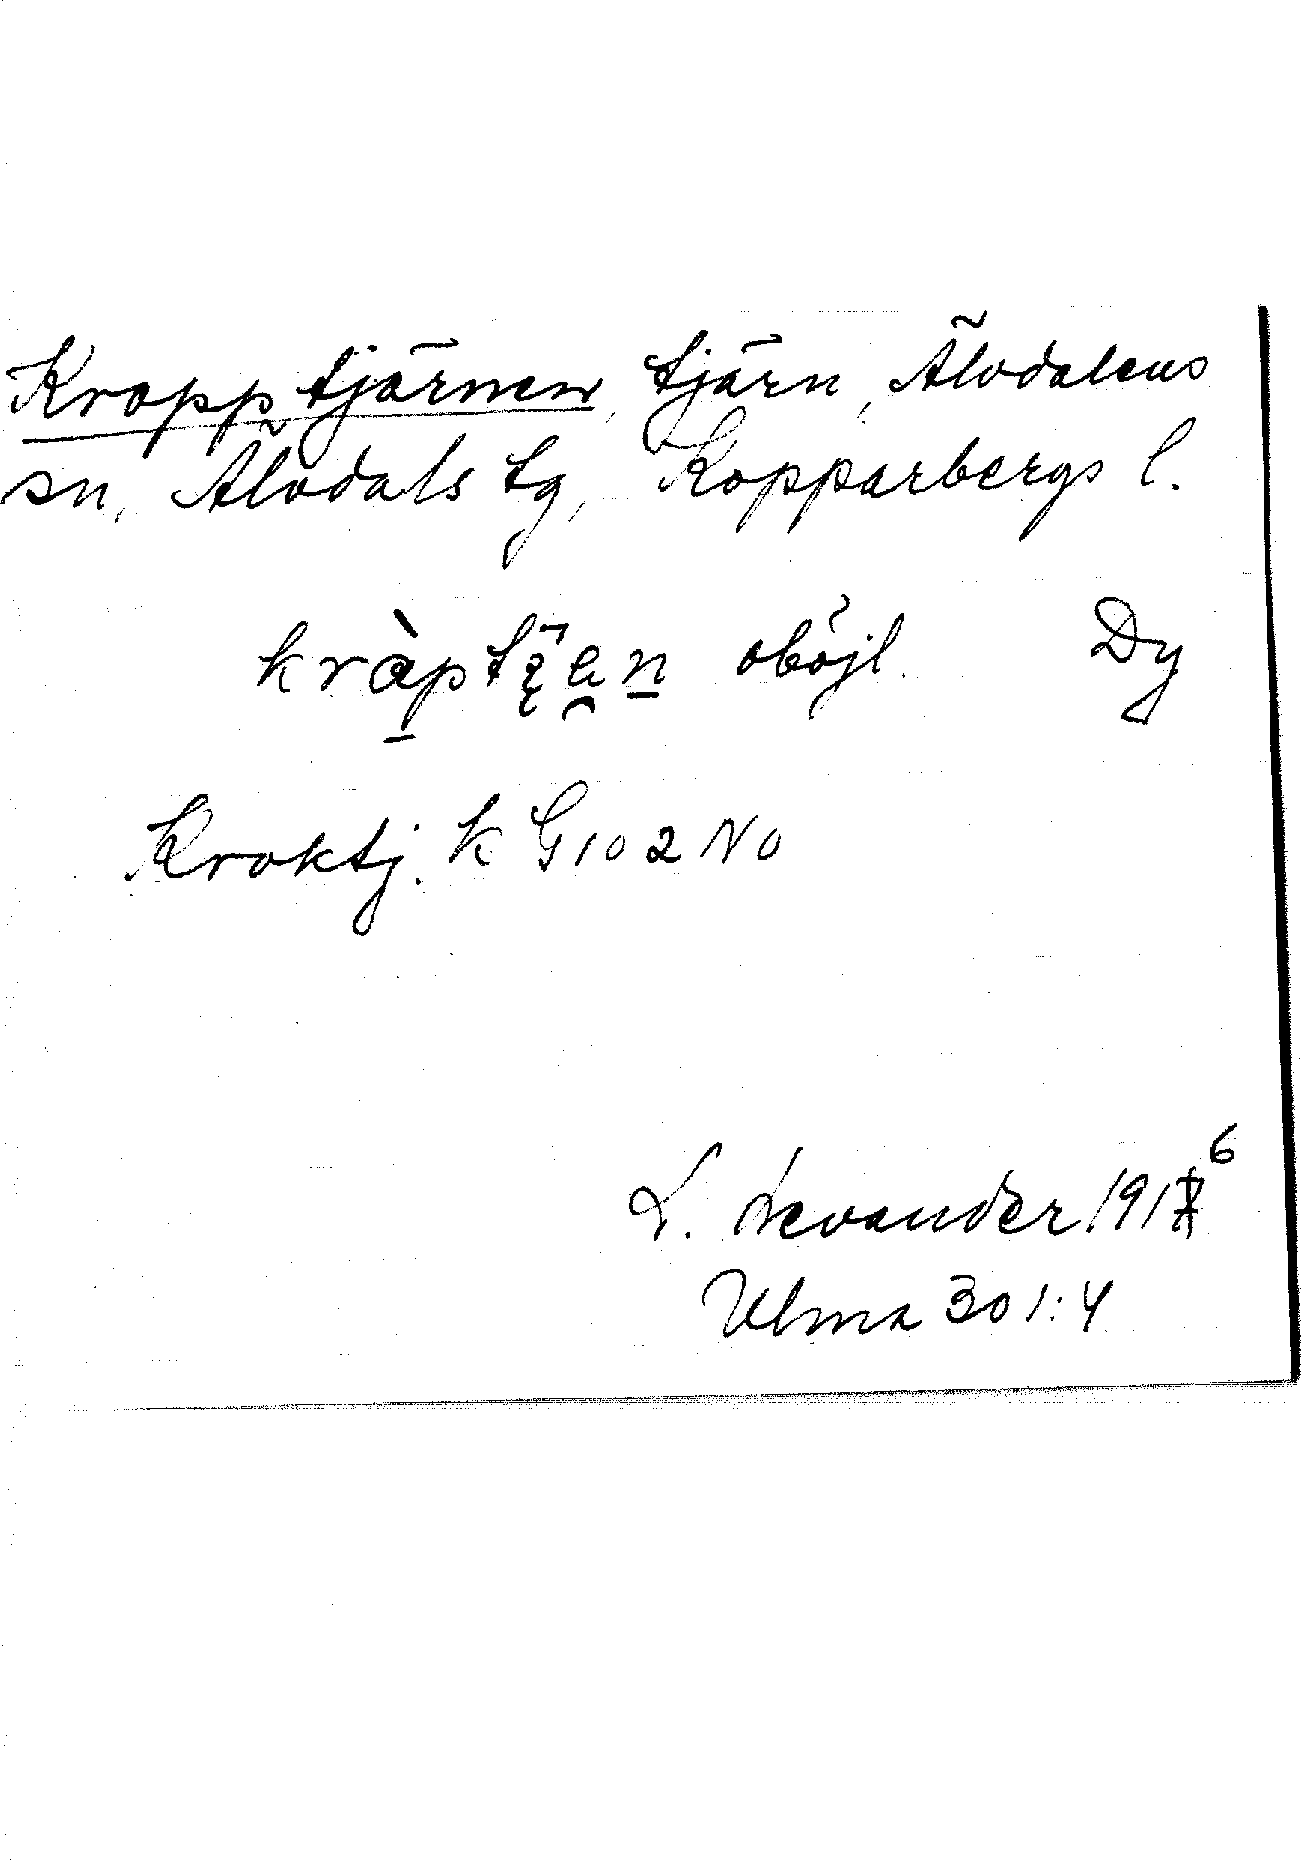 Kropptjärnen, tjärn, Älvdalens
sn, Älvdals tg, Kopparbergs l.
oböjl. Dy
Kroktj. k G 102 NO
L. Levander 1916
Ulma 301:4